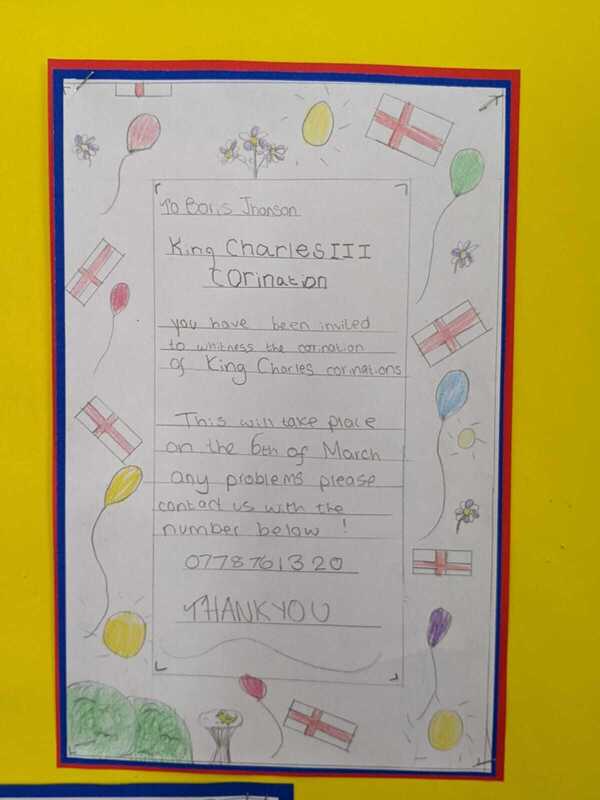 To Boris Jhonson
King Charles III
corination
you have been invited
to whitness the corination
of King Charles corinations
This will take place
on the 6th of March
any problems please
contact us with the
number below !
0778761320
THANKYOU